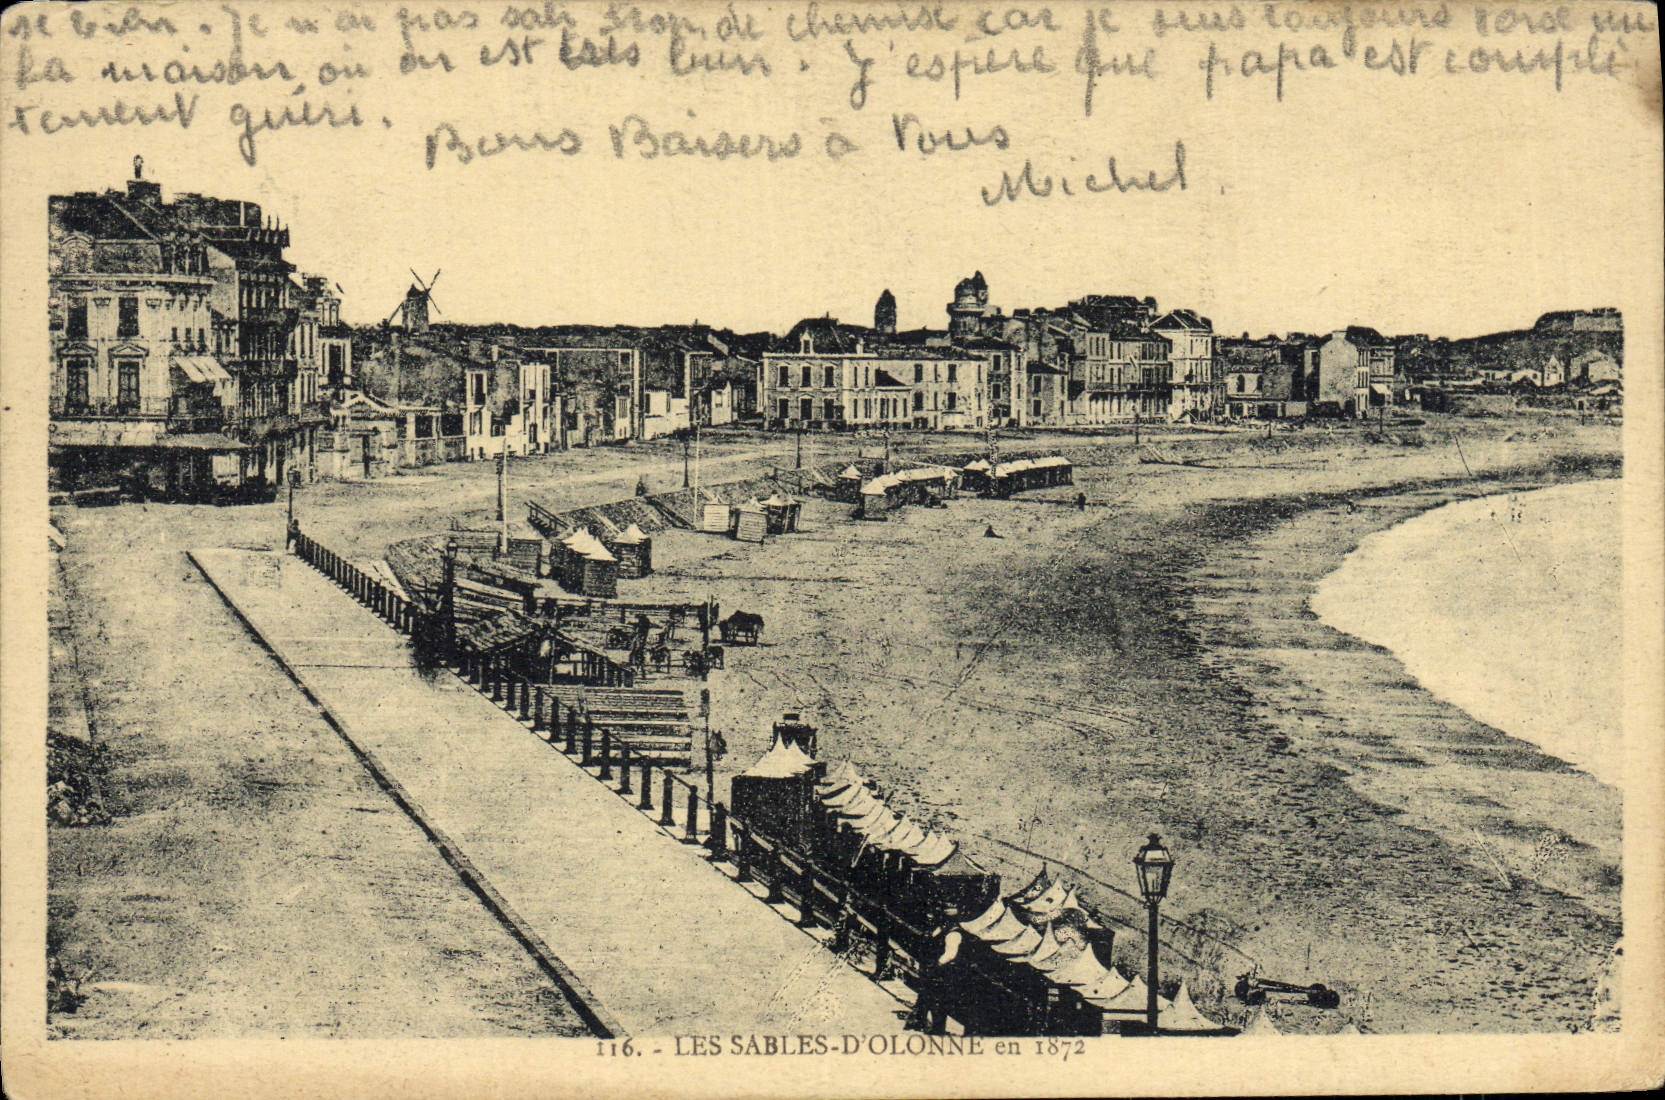 se bien. Je n'ai pas sali trop de chemise car je suis toujours torse nu
La maison où on est très bien. J'espère que papa est complè
tement guéri.
Bons Baisers à Vous
Michel.
116. - LES SABLES-D'OLONNE en 1872